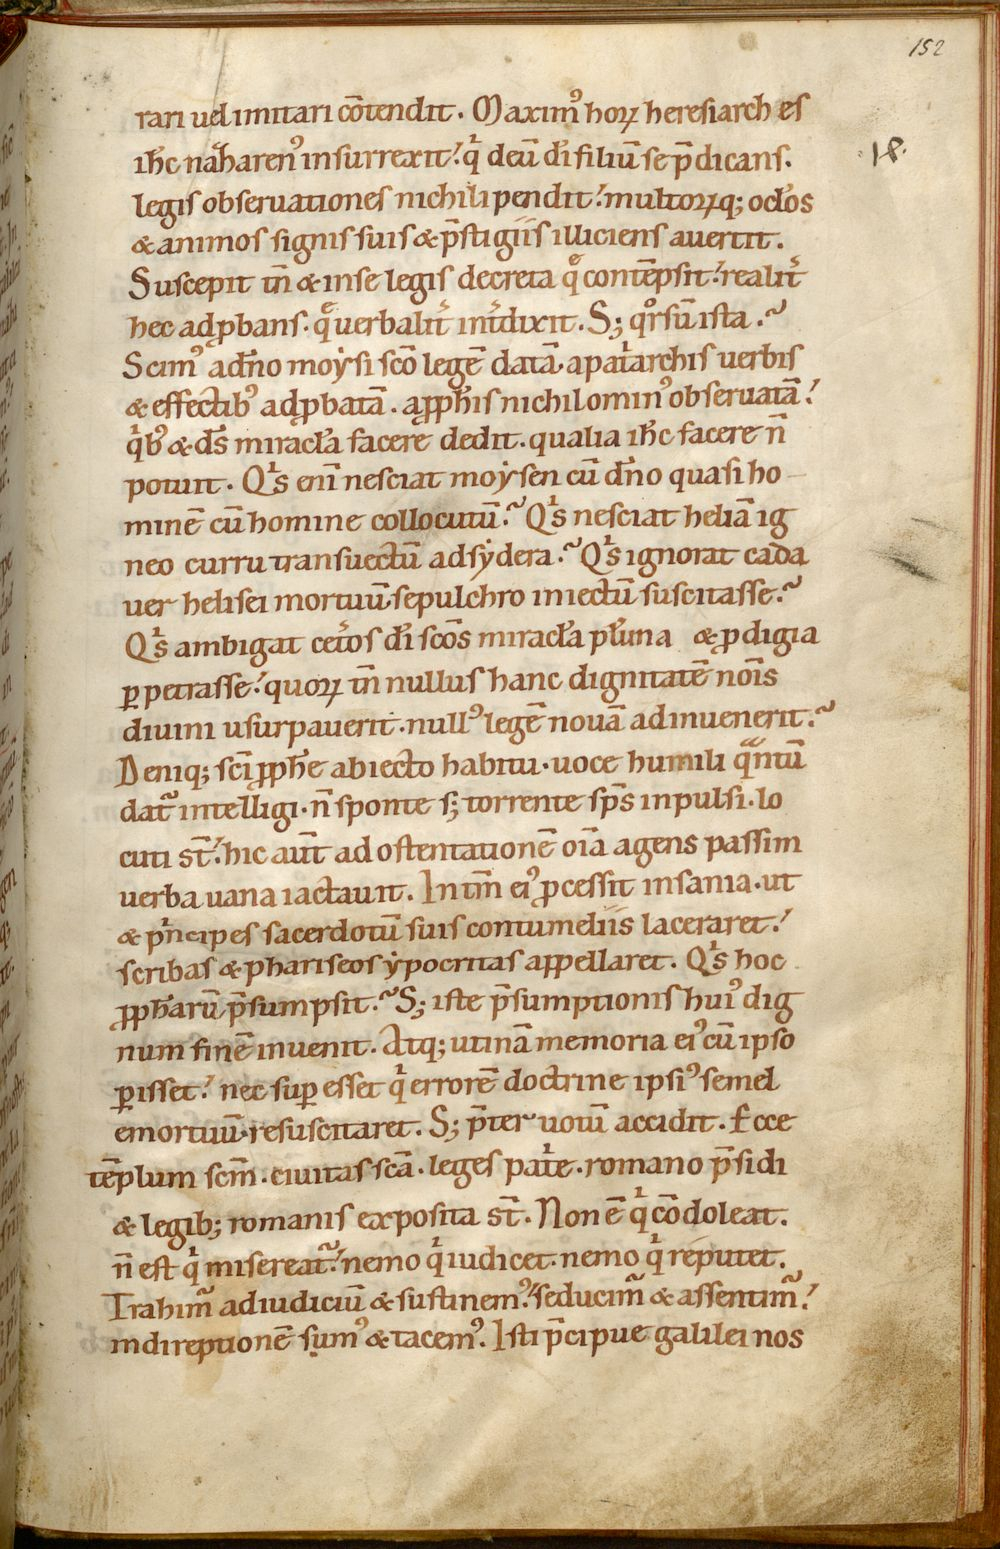 152
rari uel imitari cōtendit. Maxim᷒ hoꝝ heresiarch es
18.
ih̄c naȟaren᷒ insurrexit. qͥ deū dī filiū se p̄dicans.
legis obseruationes nichili pendit. multoꝝq; oclos
& animos signis suis & p̄stigiis illiciens auertit.
Suscepit tn̄ & inse legis decreta q̄ contēpsit. realit᷑
hec adꝓbans. q̄ uerbalit᷑ int᷑dixit. S; qͦrsū ista.
Scim᷒ adn̄o moẏsi sc̄o legē datā. apat᷑archis uerbis
& effectib᷒ adꝓbatā. aꝓph̄is nichilomin᷒ obseruatā.
qͥb᷒ & ds̄ miracl̄a facere dedit. qualia ih̄c facere n̄
potuit. Qͥs enī nesciat moẏsen cū dn̄o quasi ho
minē cū homine collocutū. Qͥs nesciat heliā ig
neo curru transuectū adsẏdera. Qͥs ignorat cada
uer helisei mortuū sepulchro iniectū suscitasse.
Qͥs ambigat cet᷑os dī scōs miracl̄a pl᷑ima & ꝓdigia
ꝑpetrasse. quoꝝ tn̄ nullus hanc dignitatē noīs
diuini usurpauerit. null᷒ legē nouā adinuenerit.
Deniq; scī ꝓph̄e abiecto habitu. uoce humili qͣntū
dat᷑ intelligi. n̄ sponte s; torrente sp̄s inpulsi. lo
cuti st̄. hic aut̄ ad ostentationē oīa agens passim
uerba uana iactauit. In tm̄ ei᷒ ꝓcessit insania. ut
& pͥncipes sacerdotū suis contumeliis laceraret.
scribas & phariseos ẏpocritas appellaret. Qͥs hoc
ꝓph̄arū p̄sumpsit. S; iste p̄sumptionis hui᷒ dig
num finē inuenit. Atq; utinā memoria ei᷒ cū ipso
ꝑisset. nec suꝑ esset qͥ errorē doctrine ipsi᷒ semel
emortuū resuscitaret. S; p̄ter uotū accidit. Ecce
tēplum scm̄. ciuitas scā. leges pat᷑e. romano p̄sidi
& legib; romanis exposita st̄. Non ē qͥ cōdoleat.
n̄ est qͥ misereat᷑. nemo qͥ iudicet. nemo qͥ reputet.
Trahim᷑ adiudiciū & sustinem᷒. seducim᷑ & assentim᷑.
indireptionē sum᷒ & tacem᷒. Isti p̄cipue galilei nos